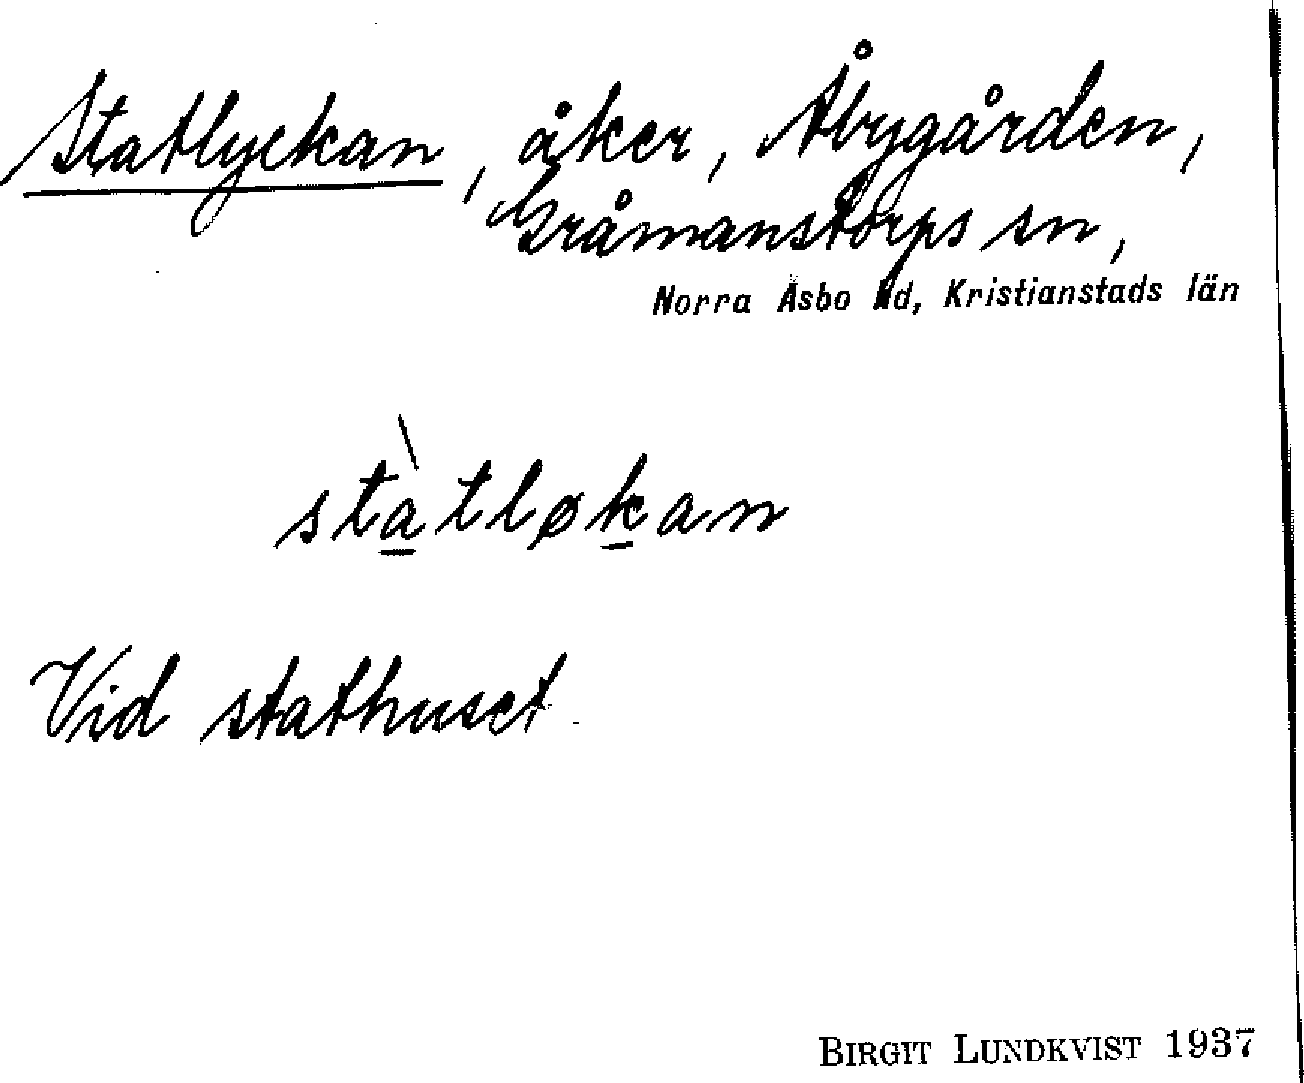 Statlyckan, åker, Åbygården,
Gråmanstorps sn,
Norra Åsbo hd, Kristianstads län
stàtløkan
Vid stathuset
BIRGIT LUNDKVIST 1937